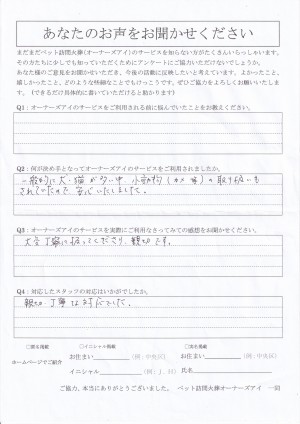 あなたのお声をお聞かせください
まだまだペット訪問火葬(オーナーズアイ)のサービスを知らない方がたくさんいらっしゃいます。
その方たちに少しでも知っていただくためにアンケートにご協力いただけないでしょうか。
あなた様のご意見をお聞かせいただき、今後の活動に反映したいと考えています。よかったこと、
嬉しかったこと、どのような些細なことでもけっこうです。ぜひご協力をよろしくお願いいたしま
す。(できるだけ具体的に書いていただけると助かります)
Q1:オーナーズアイのサービスをご利用される前に悩んでいたことをお教えください。
Q2:何が決め手となってオーナーズアイのサービスをご利用されましたか。
一般的に犬・猫が多い中 小動物(カメ等)の取り扱いも
されていたので 安心いたしました。
Q3:オーナーズアイのサービスを実際にご利用なさってみての感想をお聞かせください。
大変丁寧に扱ってくださり、親切です。
Q4:対応したスタッフの対応はいかがでしたか。
親切、丁寧な対応でした。
ホームページでご紹介
□匿名掲載 □イニシャル掲載 □実名掲載
お住まい (例:中央区) お住まい (例:中央区)
イニシャル (例:J.H) 氏名
ご協力、本当にありがとうございました。 ペット訪問火葬オーナーズアイ 一同